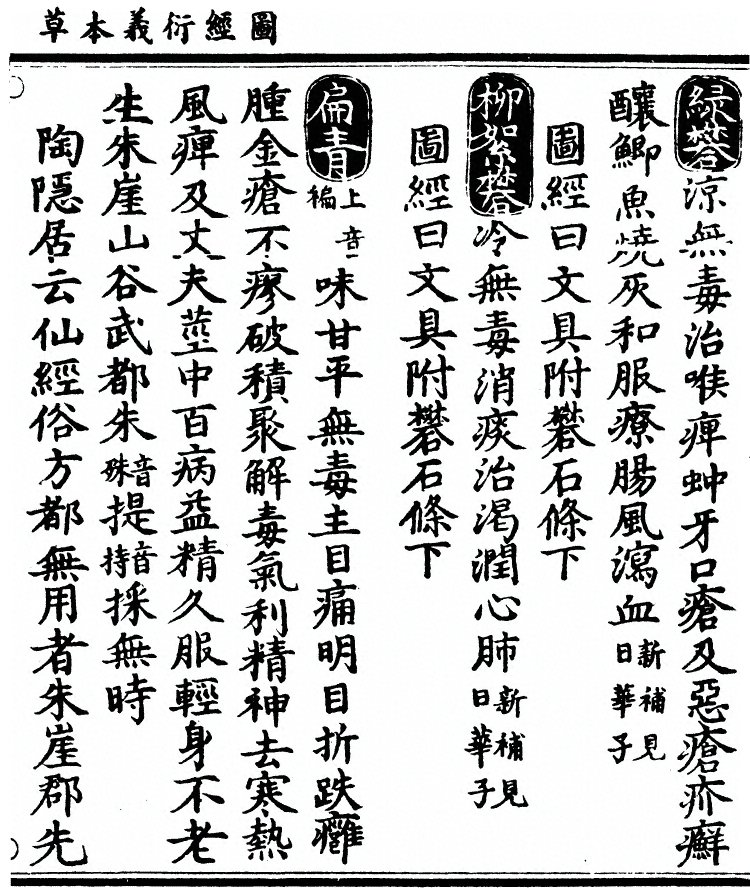 圖經衍義本草
緑礬涼無毒治喉痺蚛牙口瘡及惡瘡疥癬
釀鯽魚燒灰和服療腸風瀉血新補見日華子
圖經曰文具附礬石條下
柳絮礬冷無毒消痰治渴潤心肺新補見日華子
圖經曰文具附礬石條下
扁青上音褊味甘平無毒主目痛明目折跌癰
腫金瘡不瘳破積聚解毒氣利精神去寒熱
風痺及丈夫莖中百病益精久服輕身不老
生朱崖山谷武都朱音殊提音持採無時
陶隱居云仙經俗方都無用者朱崖郡先